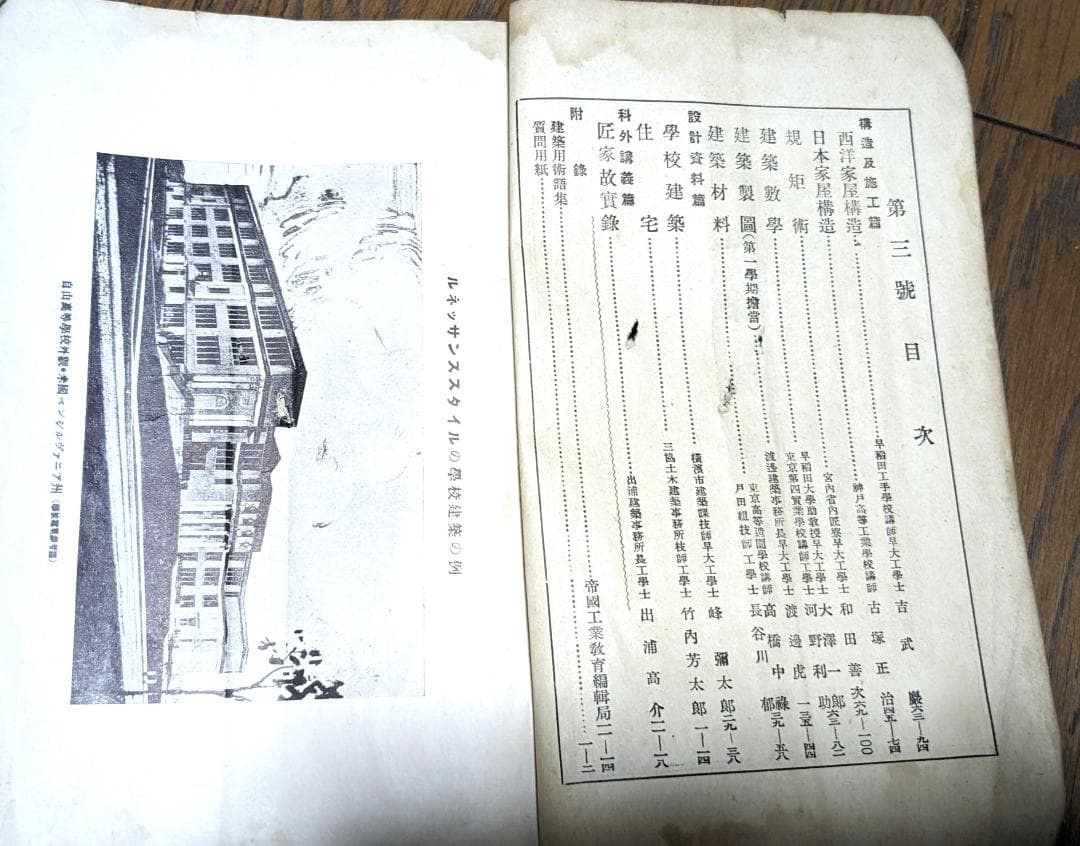 第三號目次
構造及施工篇
西洋家屋構造 早稲田工手學校講師早大工學士 吉武巖 六三—九四
日本家屋構造 神戸高等工業學校講師 古塚正治 四五—七四
規矩術 宮内省内匠寮早大工學士 和田善次 六九—一〇〇
建築數學 早稲田大學助教授早大工學士 大澤一郎 六三—八二
東京第四實業學校講師工學士 河野利助
建築製圖(第一學期擔當) 渡邊建築事務所長早大工學士 渡邊虎一 三五—四四
建築材料 東京高等造園學校講師 高橋中祿
戸田組技師工學士 長谷川郁 三九—五八
設計資料篇
學校建築 横濱市建築課技師早大工學士 峰彌太郎 二九—三八
住宅 三協土木建築事務所技師工學士 竹内芳太郎 一—一四
科外講義篇
匠家故實錄 出浦建築事務所長工學士 出浦高介 二—一八
附錄
建築用術語集 帝國工業教育編輯局 一一—一四
質問用紙 一—二
ルネッサンススタイルの學校建築の例
自由高等學校外觀・米國ペンシルヴァニア州